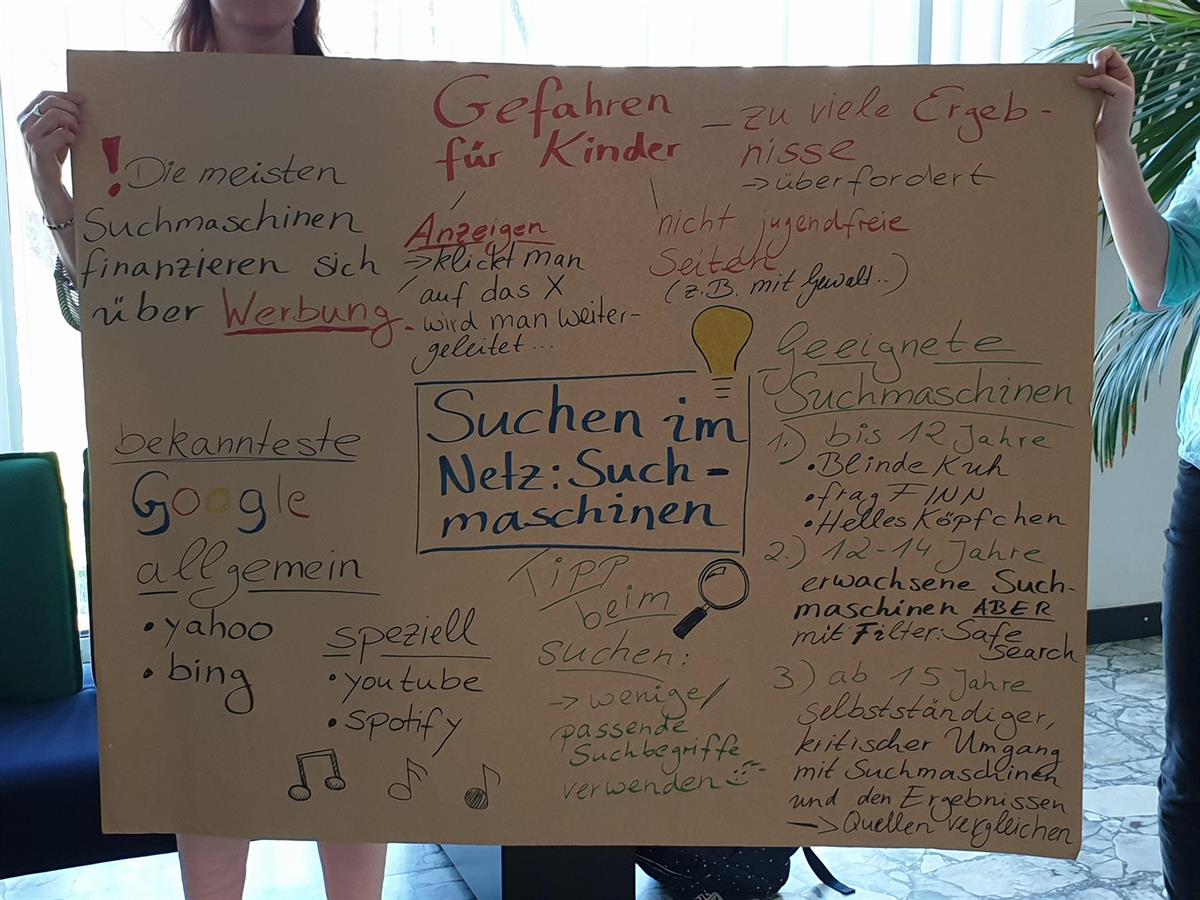 Gefahren
für Kinder
– zu viele Ergeb-
nisse
→ überfordert
! Die meisten
Suchmaschinen
finanzieren sich
über Werbung.
Anzeigen
→ klickt man
auf das X
wird man weiter-
geleitet...
nicht jugendfreie
Seiten
(z.B. mit Gewalt..)
Suchen im
Netz: Such-
maschinen
bekannteste
Google
allgemein
• yahoo
• bing
speziell
• youtube
• spotify
Tipp
beim
suchen:
→ wenige/
passende
Suchbegriffe
verwenden
Geeignete
Suchmaschinen
1.) bis 12 Jahre
• Blinde Kuh
• frag FINN
• Helles Köpfchen
2.) 12-14 Jahre
erwachsene Such-
maschinen ABER
mit Filter: Safe
search
3.) ab 15 Jahre
selbstständiger,
kritischer Umgang
mit Suchmaschinen
und den Ergebnissen
→ Quellen vergleichen